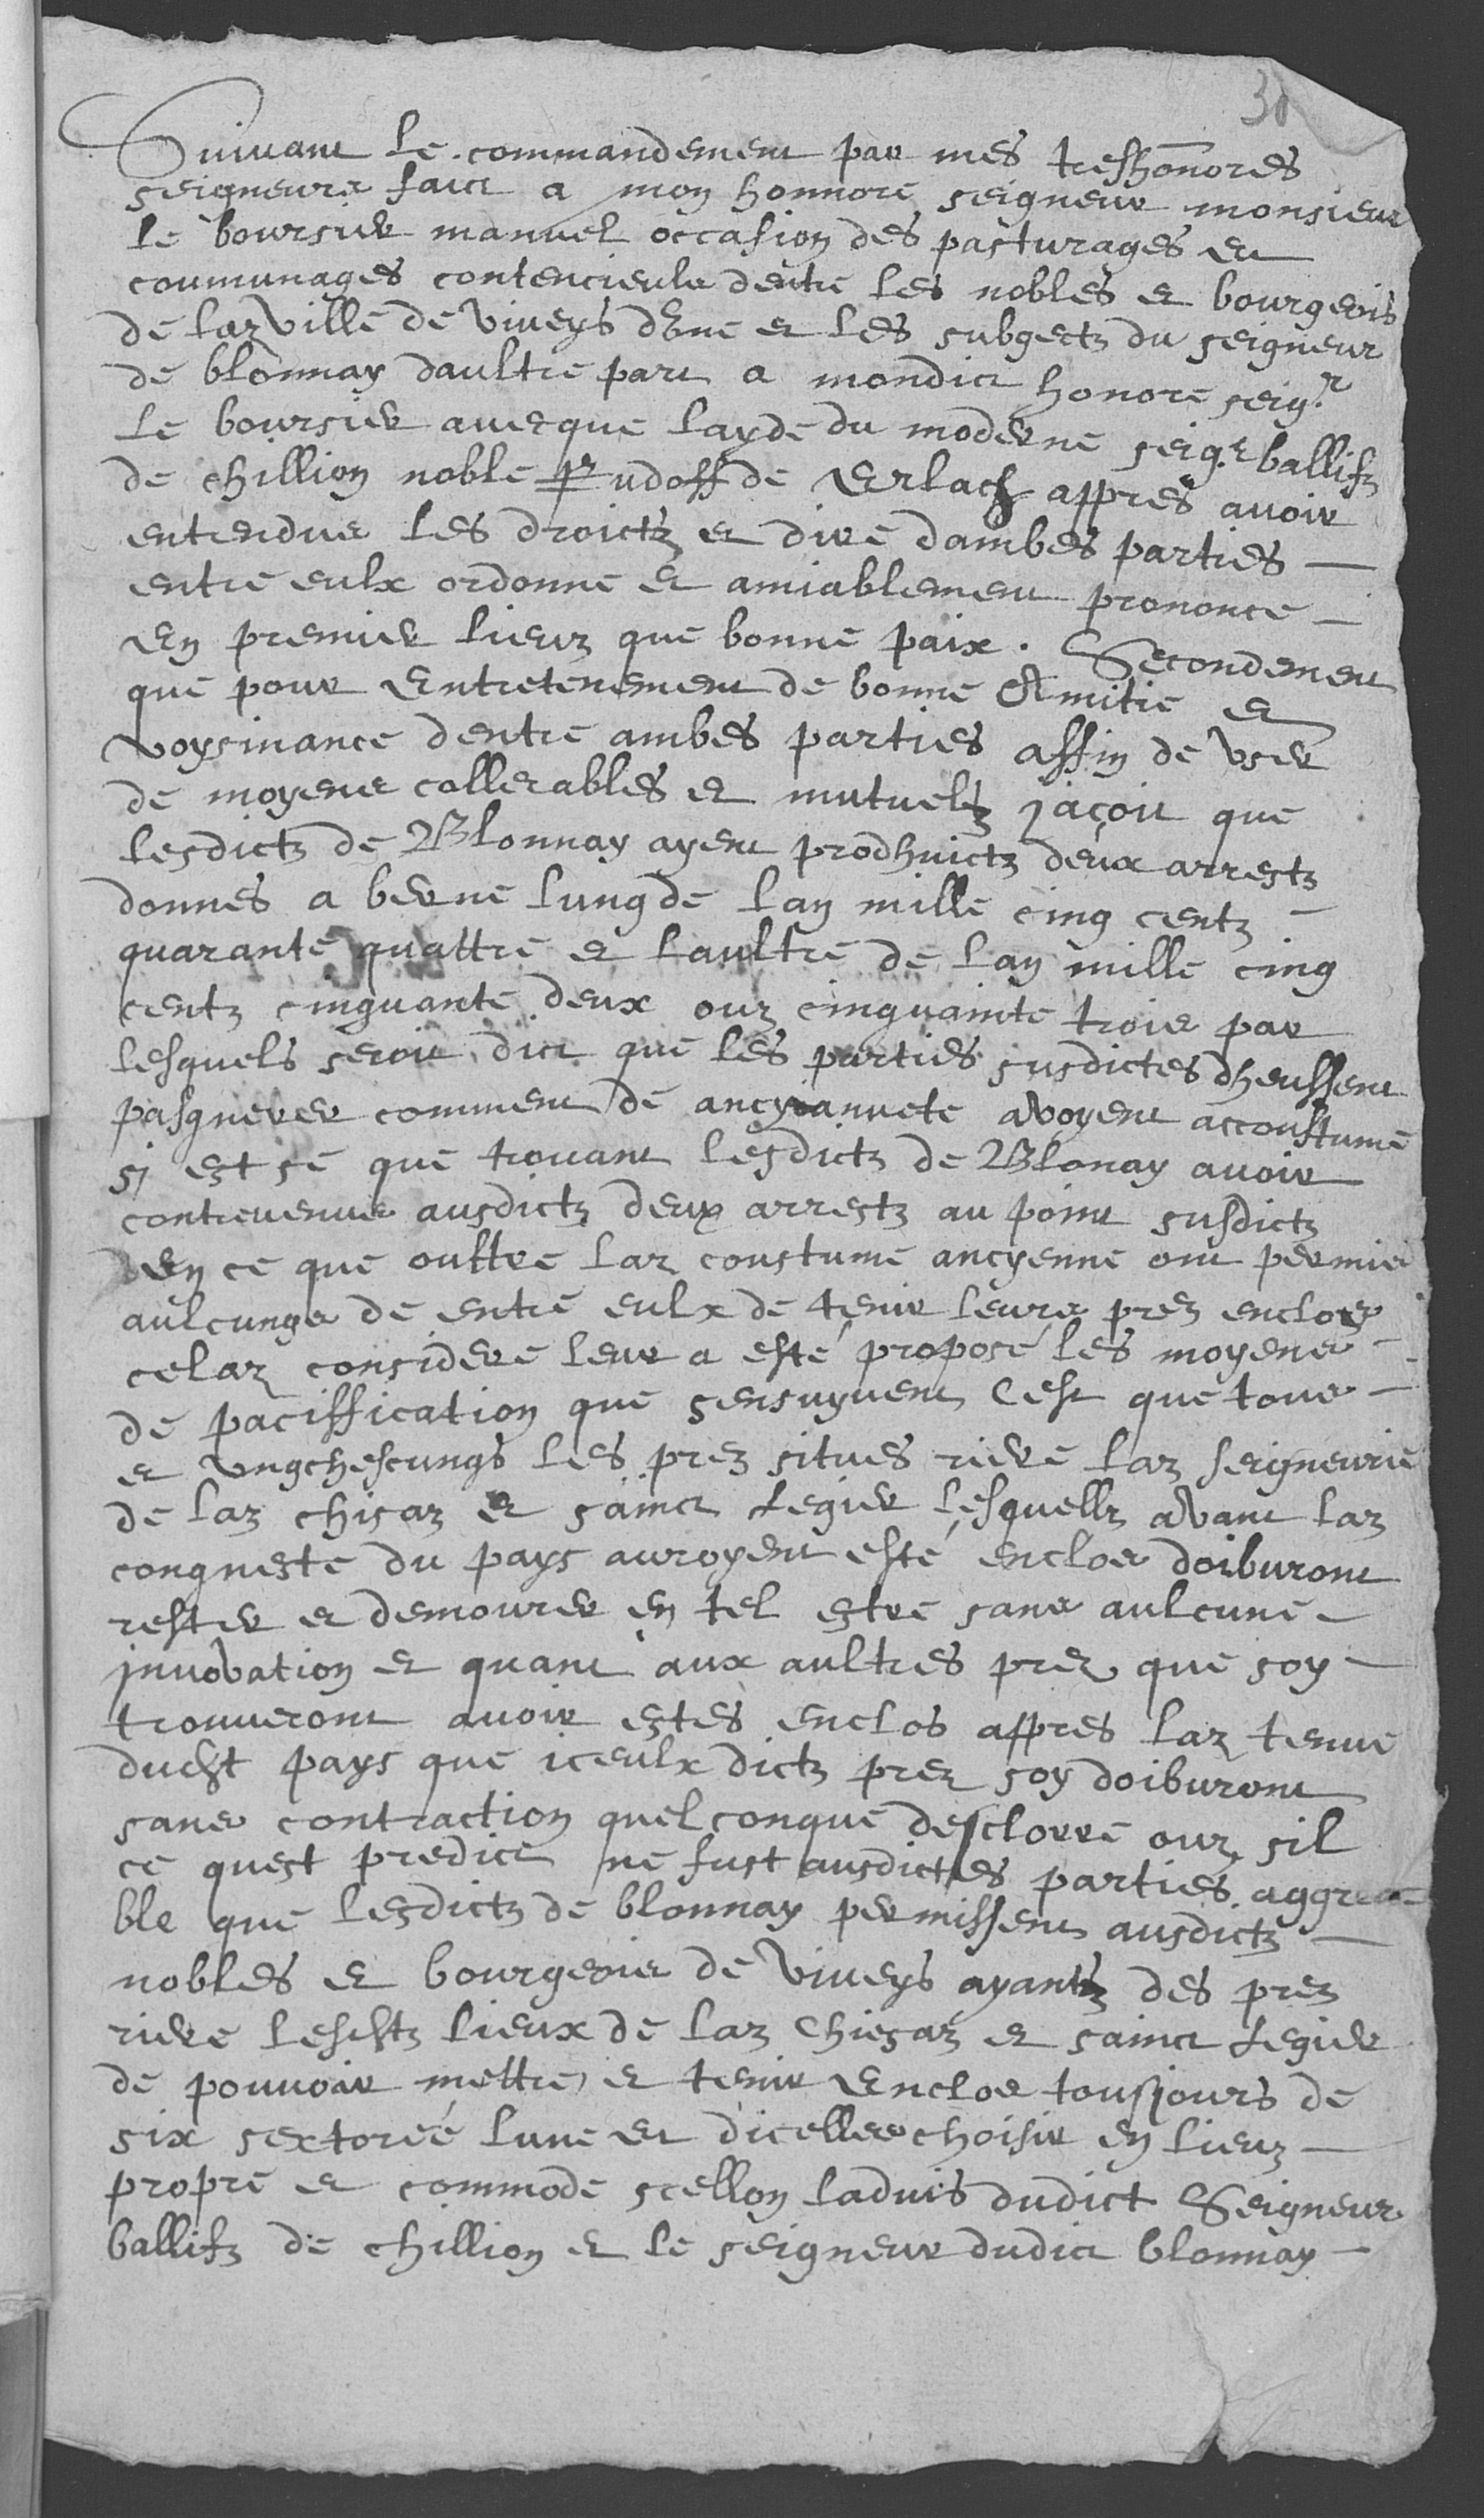 30
Suivant le commandement par mes treshonnores
seigneurs faict a mon honnore seigneur monsieur
le boursier manuel occasion des pasturages et
coumunages contencieulx dentre les nobles et bourgeois
de laz ville de viveys dune et les subgectz du seigneur
de blonnay daultre part a mondict honore seigr
le boursier avecque layde du moderne seigr ballifz
de chillion noble Rudoff de Erlach appres avoir
entendus les droictz et dire dambes parties
entre eulx ordonne et amiablement prononce
En premier lieuz que bonne paix. Secondement
que pour Entretenement de bonne Amitie et
voysinance dentre ambes parties affin de user
de moyens collerables et mutuelz jaçoit que
lesdictz de Blonnay ayent prodhuictz deux arrestz
donnes a berne lung de lan mille cinq centz
quarante quattre et laultre de lan mille cinq
centz cinquante deux ouz cinquainte trois par
lesquels seroit dict que les parties susdictes dheussent
pasquerer comment de ancyannete avoyent accoustume
si est se que trouvant lesdictz de Blonay avoir
contrevenus ausdictz deux arrestz au point susdictz
En ce que oultre laz coustume ancyenne ont permis
aulcungs de entre eulx de tenir leurs prez enclos
celaz considere leur a esté proposé les moyens
de paciffication que sensuyvent Cest que tous
et ungchescungs les prez situes riere laz seigneurie
de laz chisaz et sainct Legier lesquellz avant laz
conqueste du pays auroyent esté enclos doiburont
rester et demourer en tel estre sans aulcune
innovation et quant aux aultres prez que soy
trouveront avoir estes enclos appres laz tenue
dudit pays que iceulx dictz prez soy doiburont
sans contraction quelconque desclorre ouz sil
ce quest predict ne fust ausdictes parties aggrea
ble que lesdictz de blonnay permissent ausdictz
nobles et bourgeois de viveys ayantz des prez
riere lesditz lieux de laz Chiesaz et sainct Legier
de pouvoir mettre et tenir Enclos tousjours de
six sextoréé lune et dicelles choisir en lieuz
propre et commode scellon ladvis dudict Seigneur
ballifz de chillion et le seigneur dudict blonnay